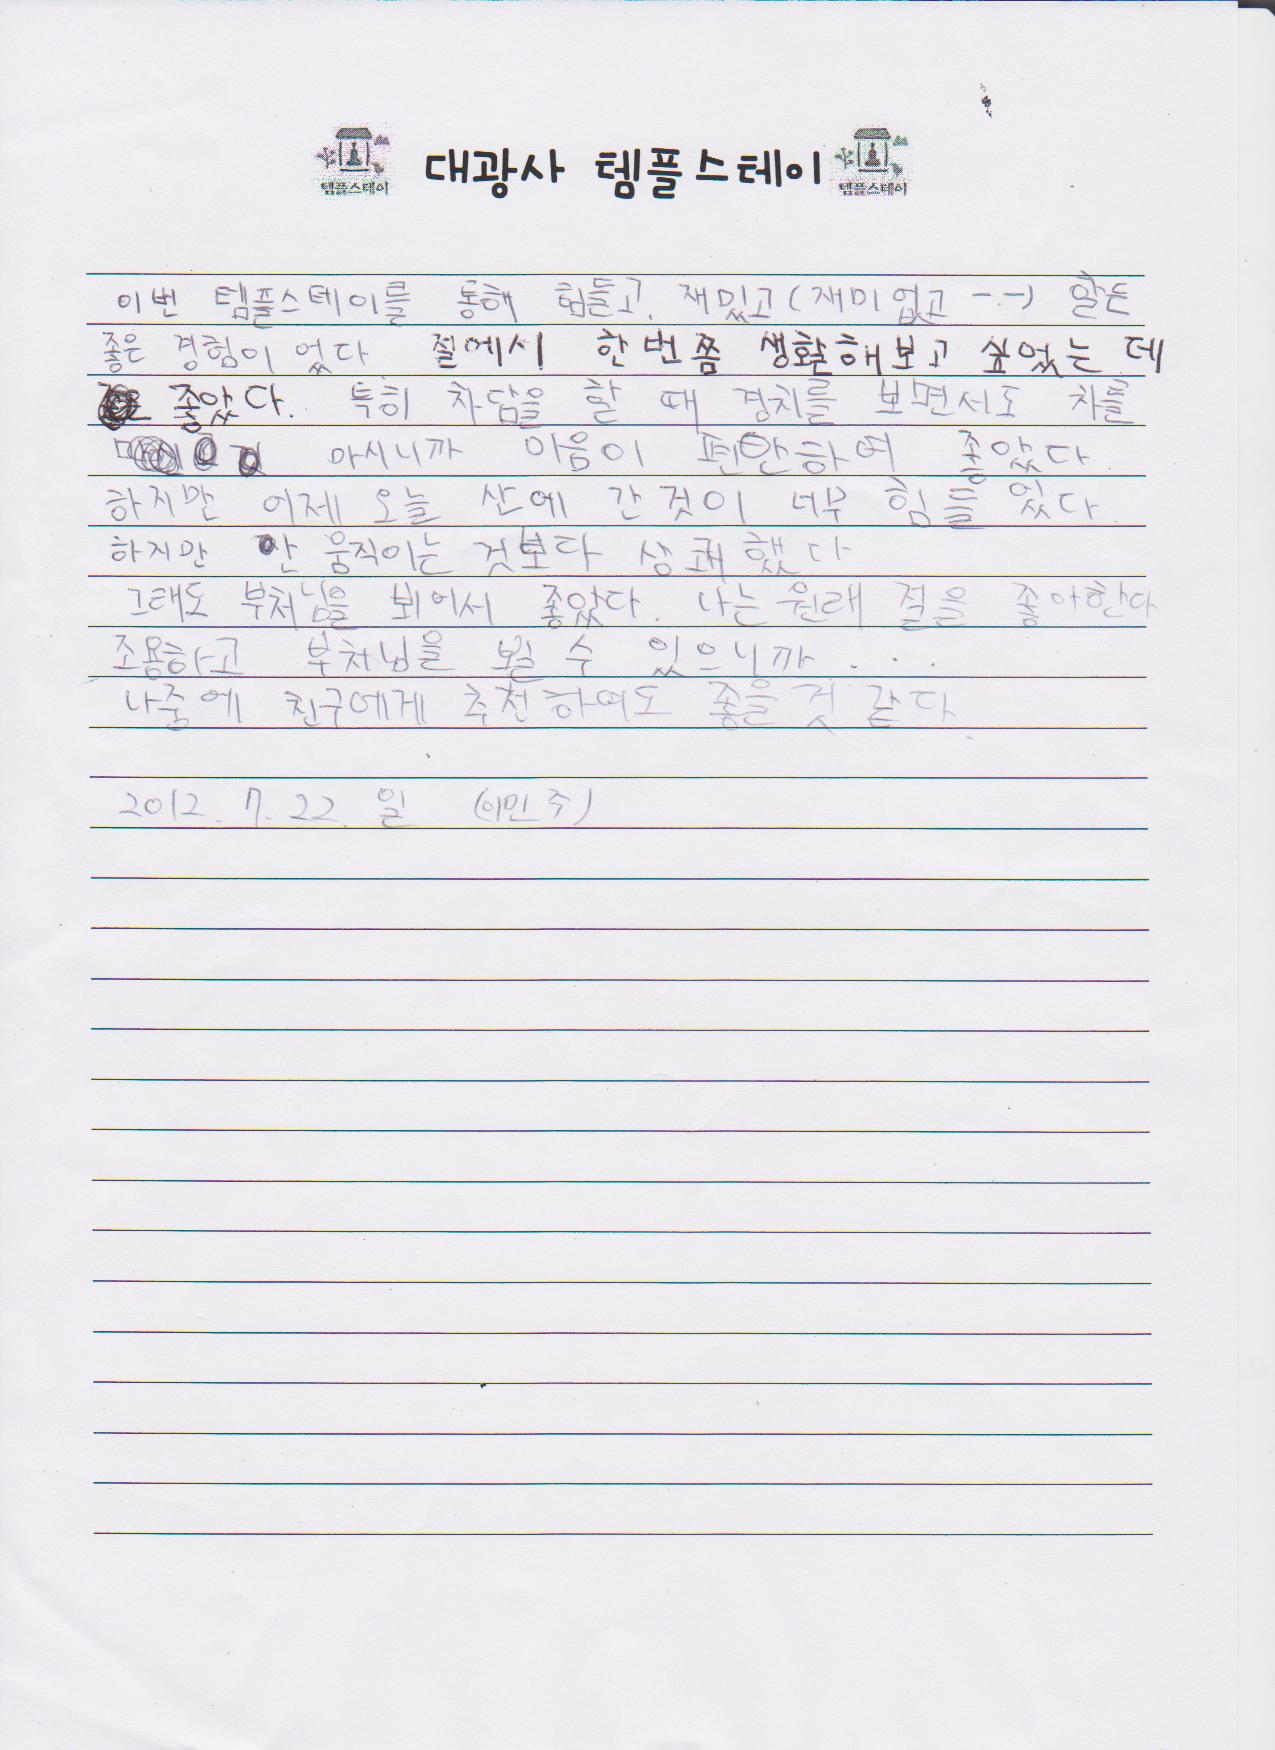 템플스테이 대광사 템플스테이 템플스테이
이번 템플스테이를 통해 힘들고, 재밌고(재미없고 -.-) 암튼
좋은 경험이 었다 절에서 한번쯤 생활해보고 싶었는 데
좋았다. 특히 차담을 할 때 경치를 보면서도 차를
마시니까 마음이 편안하여 좋았다.
하지만 어제 오늘 산에 간것이 너무 힘들었다.
하지만 안 움직이는 것보다 상쾌했다
그래도 부처님을 뵈어서 좋았다. 나는 원래 절을 좋아한다
조용하고 부처님을 뵐 수 있으니까 . . .
나중에 친구에게 추천하여도 좋을것 같다.
2012. 7. 22. 일 (이민주)